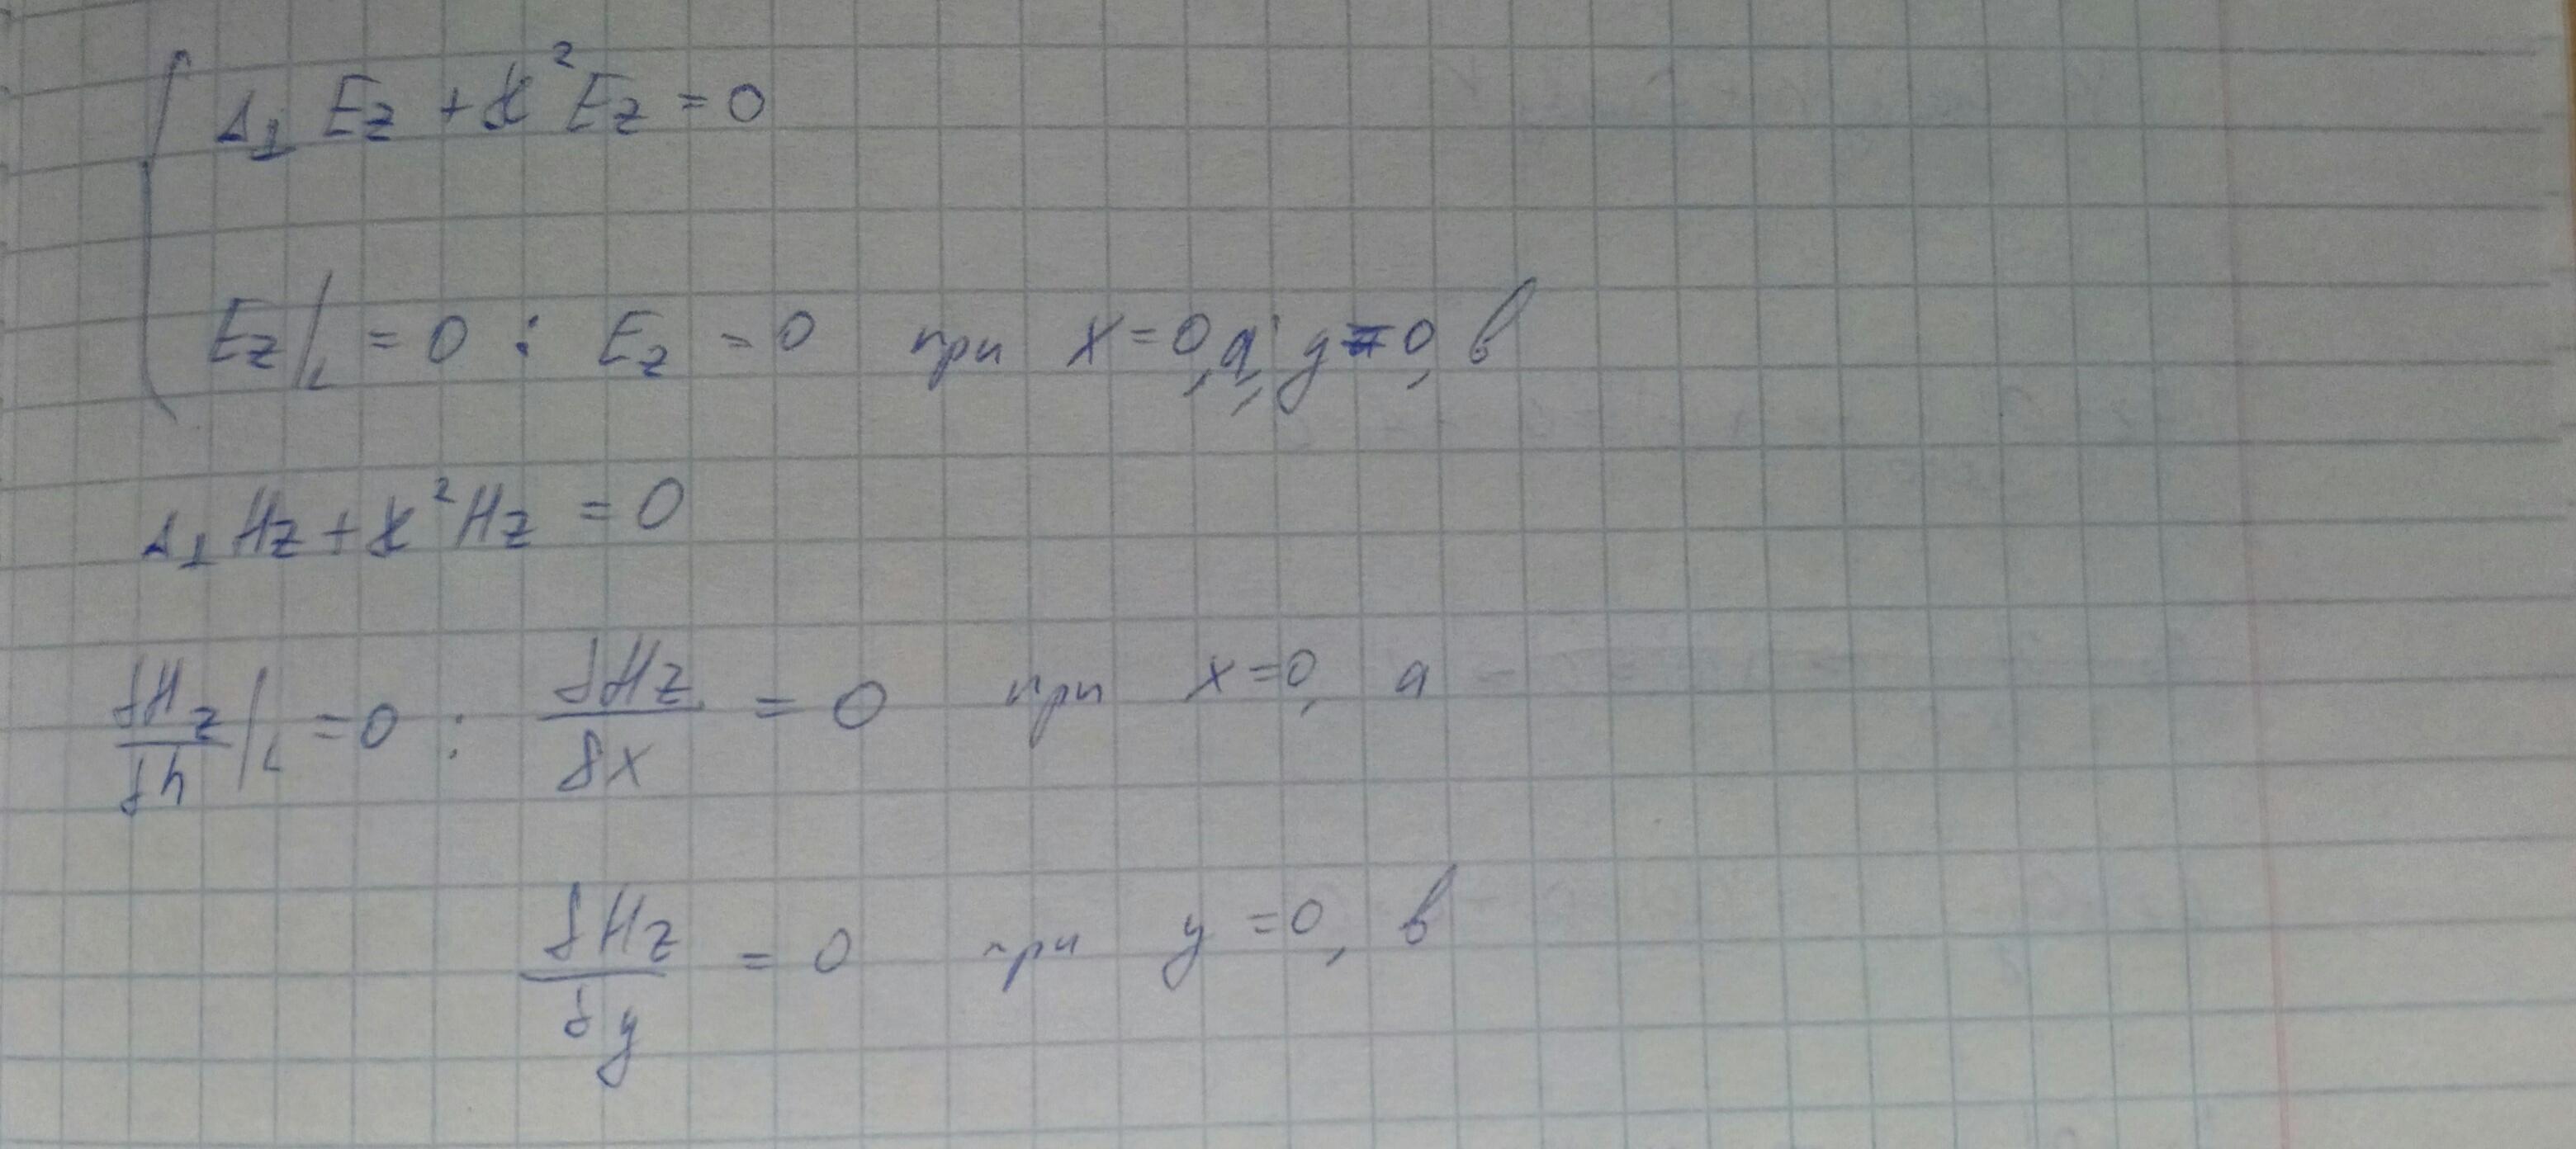 Δ⊥ Ez + ϰ² Ez = 0
Ez|L = 0 : Ez = 0 при x = 0, a; y = 0, b
Δ⊥ Hz + ϰ² Hz = 0
∂Hz/∂n|L = 0 : ∂Hz/∂x = 0 при x = 0, a
∂Hz/∂y = 0 при y = 0, b